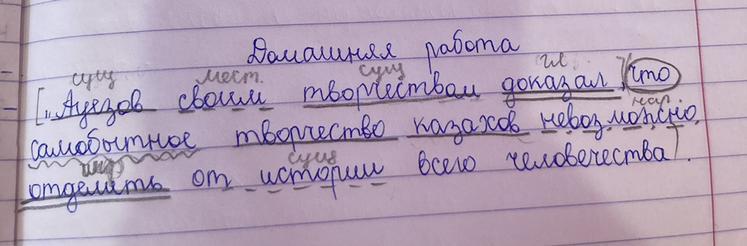 Домашняя работа
сущ мест. сущ гл.
[„Ауезов своим творчеством доказал], (что
нар.
самобытное творчество казахов невозможно
инф сущ
отделить от истории всего человечества).